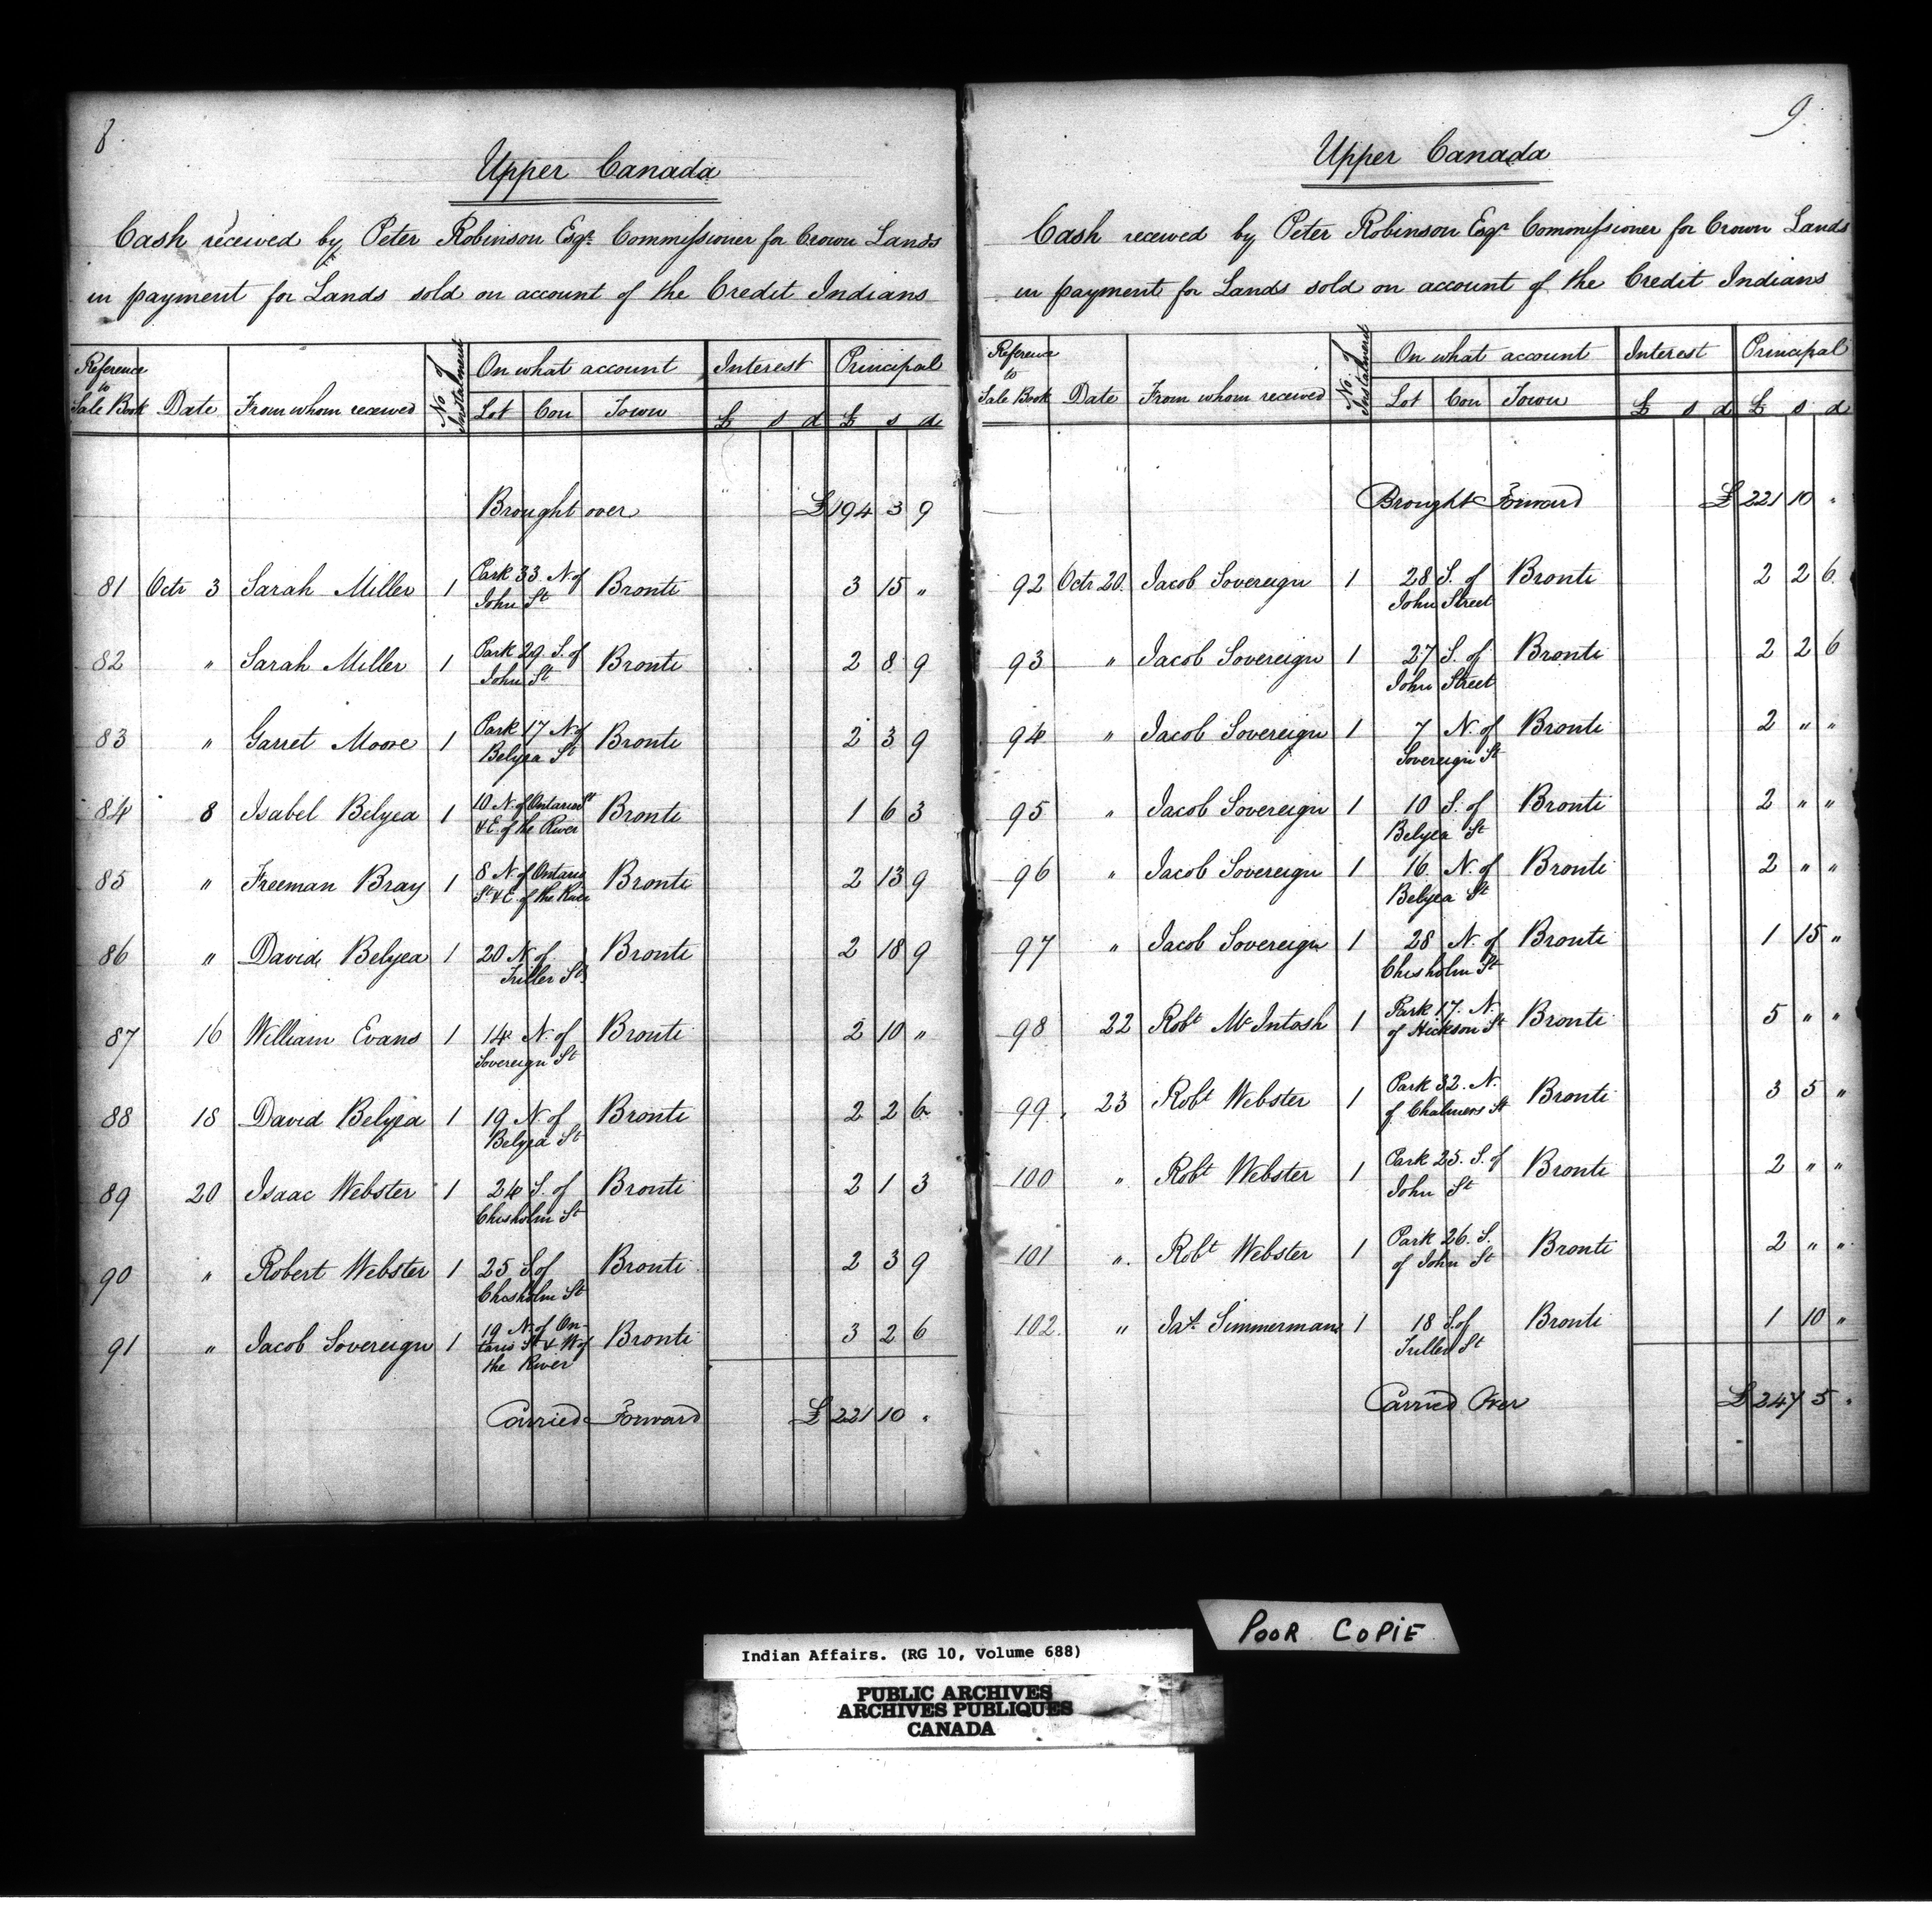 8.
Upper Canada
Cash received by Peter Robinson Esqr. Commissioner for Crown Lands
in payment for Lands sold on account of the Credit Indians
Reference to Sale Book Date From whom received No. of Instalment On what account Interest Principal
Lot Con Town £ s d £ s d
Brought over £194 3 9
81 Octr 3 Sarah Miller 1 Park 33. N. of John St Bronti 3 15 "
82 " Sarah Miller 1 Park 29. S. of John St Bronti 2 8 9
83 " Garret Moore 1 Park 17 N of Belyea St Bronti 2 3 9
84 8 Isabel Belyea 1 10 N. of Ontario St & E. of the River Bronti 1 6 3
85 " Freeman Bray 1 8 N. of Ontario St & E. of the River Bronti 2 13 9
86 " David Belyea 1 20 N of Triller St Bronti 2 18 9
87 16 William Evans 1 14 N. of Sovereign St Bronti 2 10 "
88 18 David Belyea 1 19 N. of Belyea St Bronti 2 2 6
89 20 Isaac Webster 1 24 S. of Chisholm St Bronti 2 1 3
90 " Robert Webster 1 25 S. of Chisholm St Bronti 2 3 9
91 " Jacob Sovereign 1 19 N. of On-
tario St & W of
the River Bronti 3 2 6
Carried Forward £221 10 "
9.
Upper Canada
Cash received by Peter Robinson Esqr Commissioner for Crown Lands
in payment for Lands sold on account of the Credit Indians
Reference to Sale Book Date From whom received No. of Instalment On what account Interest Principal
Lot Con Town £ s d £ s d
Brought Forward £221 10 "
92 Octr 20. Jacob Sovereign 1 28 S. of John Street Bronti 2 2 6
93 " Jacob Sovereign 1 27 S. of John Street Bronti 2 2 6
94 " Jacob Sovereign 1 7 N. of Sovereign St Bronti 2 " "
95 " Jacob Sovereign 1 10 S. of Belyea St Bronti 2 " "
96 " Jacob Sovereign 1 16 N. of Belyea St Bronti 2 " "
97 " Jacob Sovereign 1 28 N. of Chisholm St Bronti 1 15 "
98 22 Robt McIntosh 1 Park 17. N. of Hickson St Bronti 5 " "
99. 23 Robt Webster 1 Park 32. N. of Chalmers St Bronti 3 5 "
100 " Robt Webster 1 Park 25. S. of John St Bronti 2 " "
101 " Robt Webster 1 Park 26. S. of John St Bronti 2 " "
102. " Simmerman 1 18 S. of Triller St Bronti 1 10 "
Carried Over £247 5 "
POOR COPIE
Indian Affairs. (RG 10, Volume 688)
PUBLIC ARCHIVES
ARCHIVES PUBLIQUES
CANADA